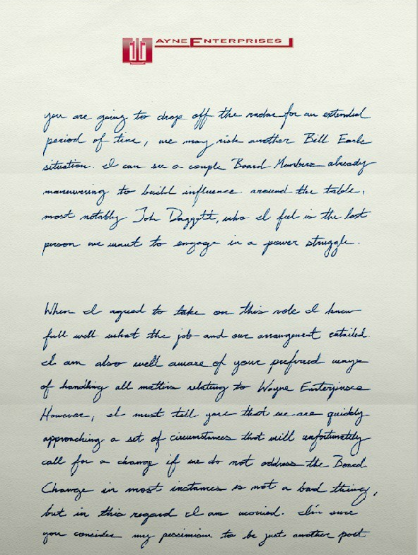 WAYNE ENTERPRISES
you are going to drop off the radar for an extended
period of time, we may risk another Bill Earle
situation. I can see a couple Board Members already
maneuvering to build influence around the table,
most notably John Daggett, who I feel is the last
person we want to engage in a power struggle.
When I agreed to take on this role I knew
full well what the job and our arrangement entailed.
I am also well aware of your preferred ways
of handling all matters relating to Wayne Enterprises
However, I must tell you that we are quickly
approaching a set of circumstances that will unfortunately
call for a change if we do not address the Board
Change in most instances is not a bad thing,
but in this regard I am worried. I'm sure
you consider my pessimism to be just another post